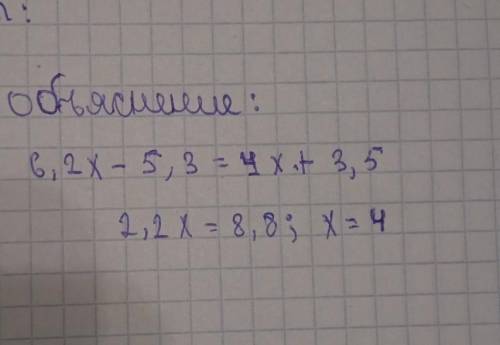 объяснение:
6,2x - 5,3 = 4x + 3,5
2,2x = 8,8; x = 4